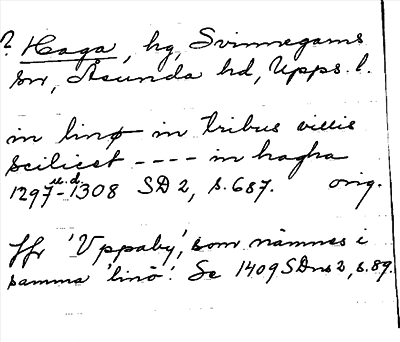 ? Haga, hg, Svinnegarns
sn, Åsunda hd, Upps. l.
in linø in tribus villis
scilicet ---- in hagha
1297 u.d. - 1308 SD 2, s. 687. orig.
Jfr 'Vppaby', som nämnes i
samma 'linö'. Se 1409 SDns 2, s. 89.